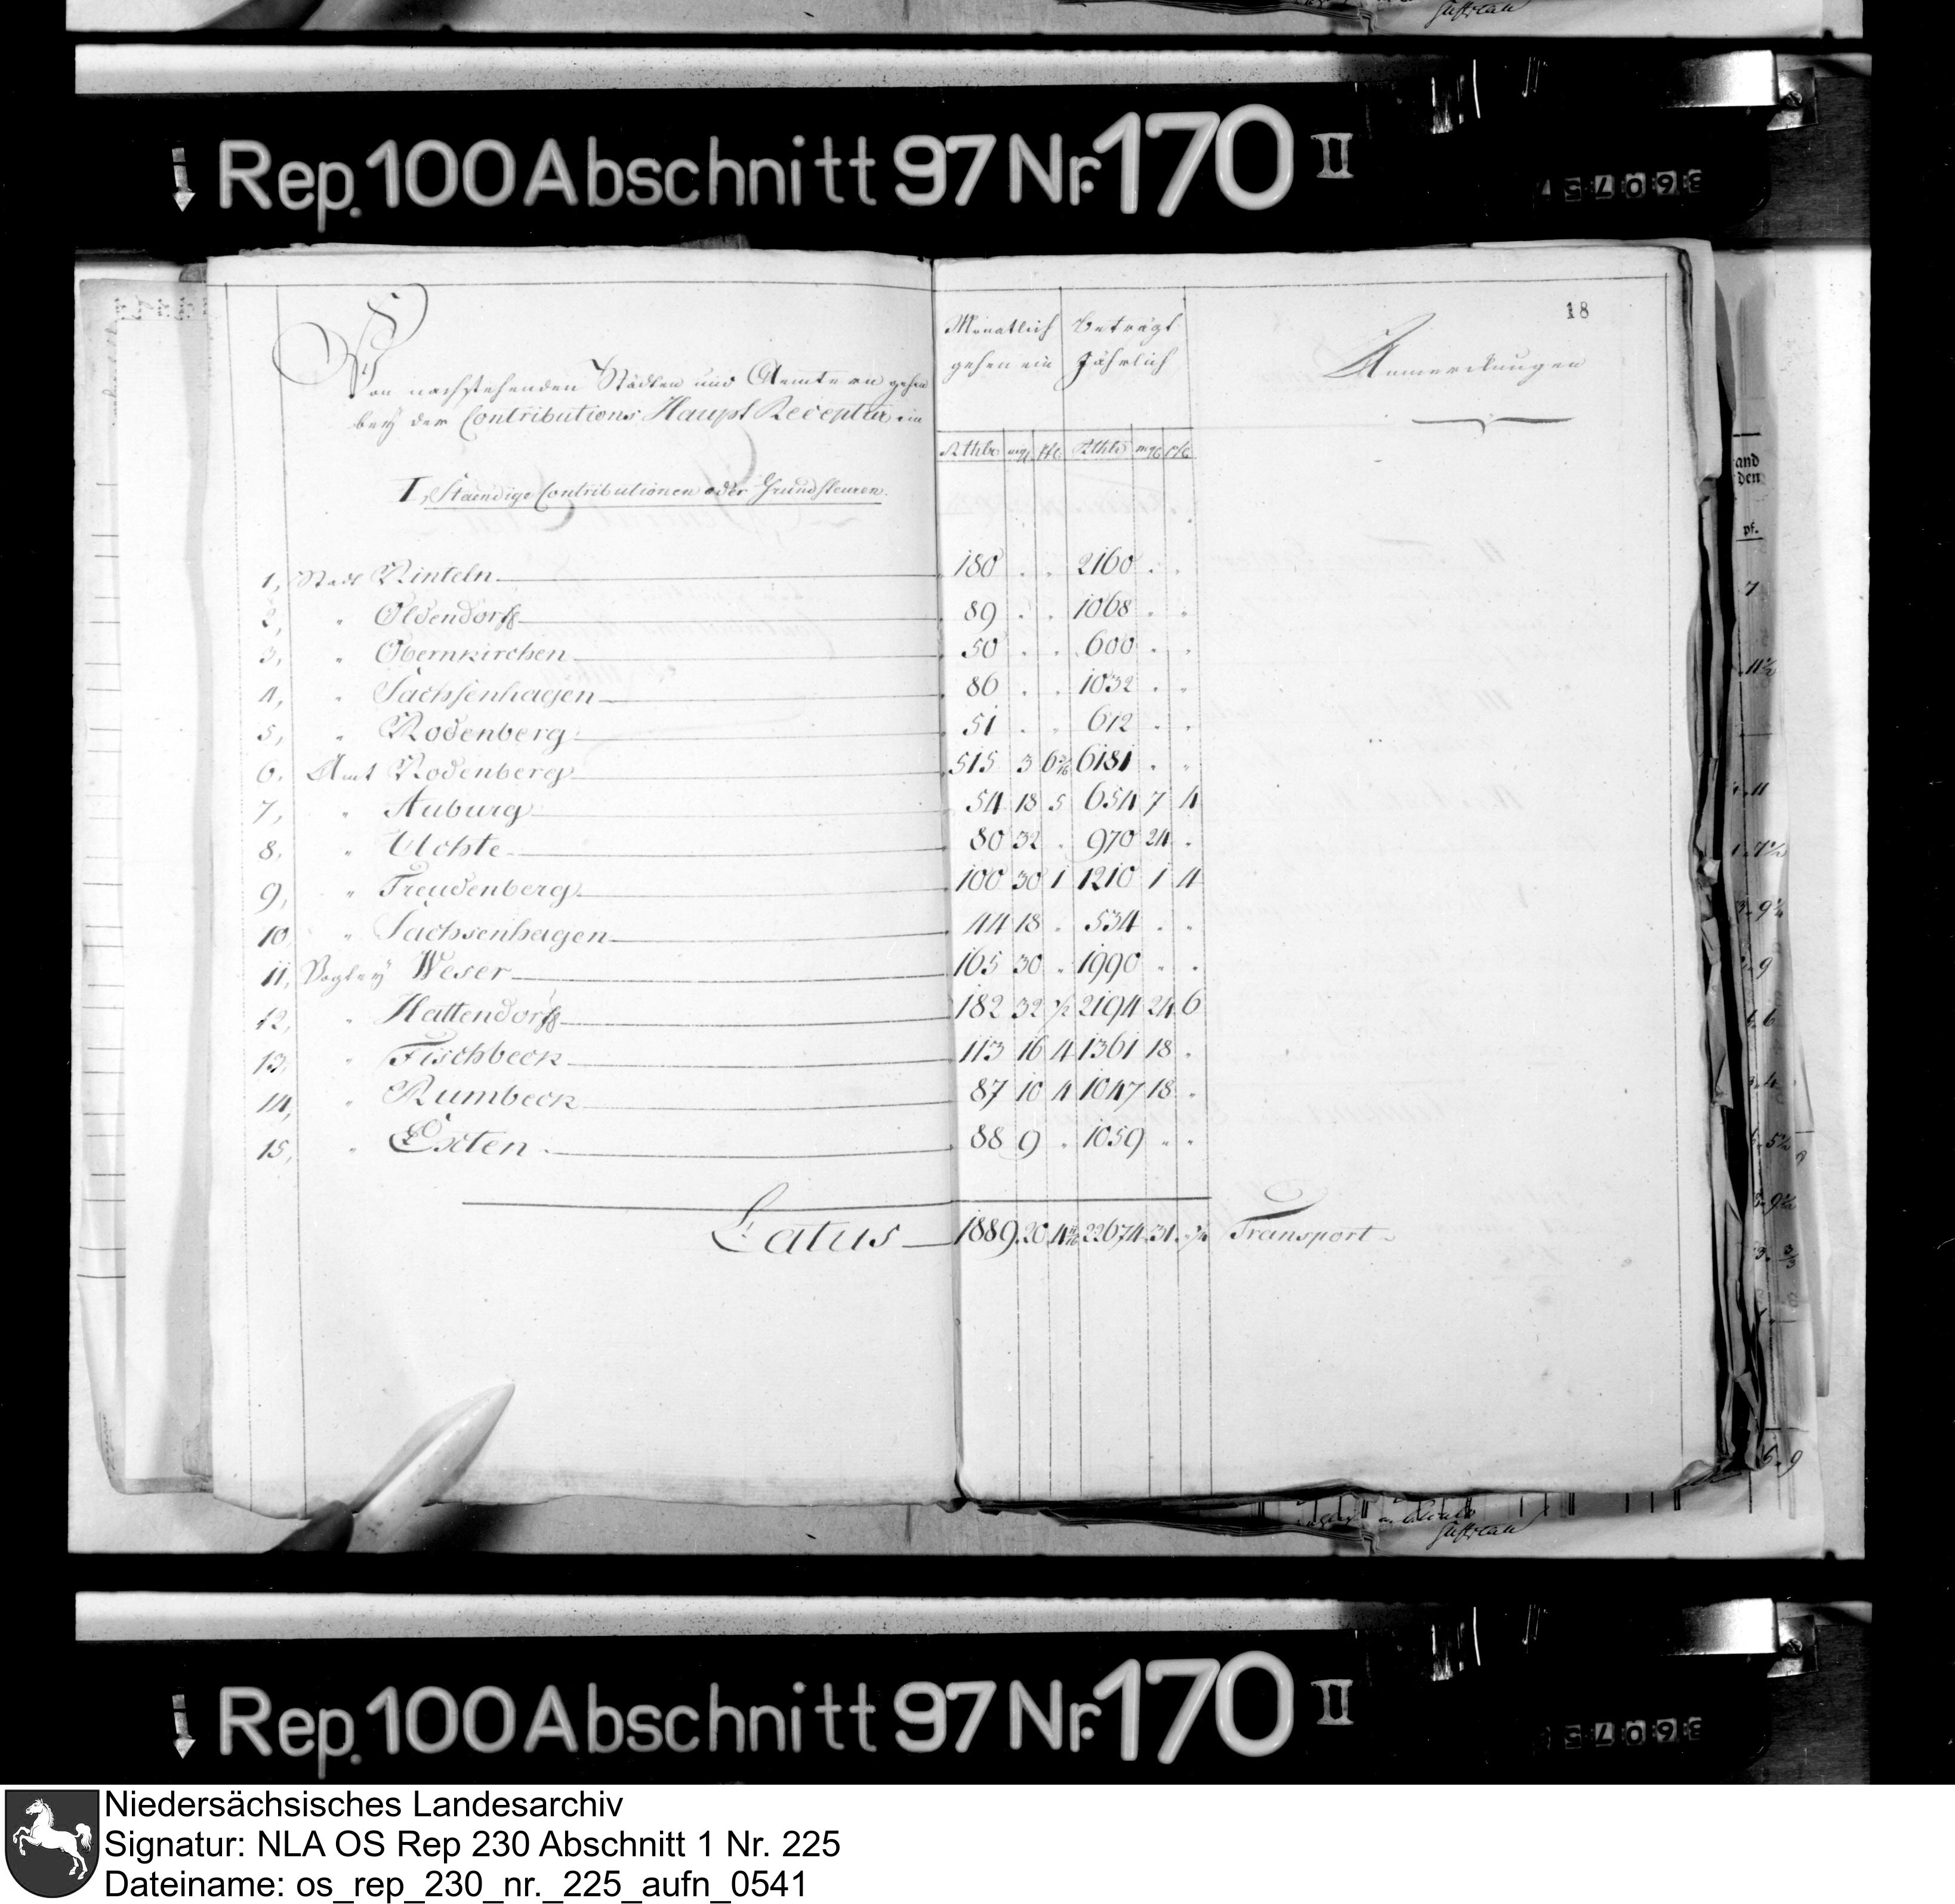 Rep. 100 Abschnitt 97 Nr. 170 II
18
Von nachstehenden Städten und Aemtern gehen
bey der Contributions Haupt Receptur ein
Monatlich gehen ein
beträgt Jährlich
Anmerckungen
Rthlr mg pf Rthlr mg pf
I, Staendige Contributionen oder Grundsteuren.
1, Stadt Rinteln 180 . . 2160 . .
2, " Oldendorff 89 . . 1068 . .
3, " Obernkirchen 50 . . 600 . .
4, " Sachsenhagen 86 . . 1032 . .
5, " Rodenberg 51 . . 612 . .
6. Amt Rodenberg 515 3 6 6181 . .
7, " Auburg 54 18 5 654 7 4
8. " Uchte 80 32 . 970 24 .
9, " Freudenberg 100 30 1 1210 1 4
10 " Sachsenhagen 44 18 . 534 . .
11, Vogtey Weser 165 30 . 1990 . .
12, " Hattendorff 182 32 1/2 2194 24 6
13, " Fischbeck 113 16 4 1361 18 .
14, " Rumbeck 87 10 4 1047 18 .
15, " Exten 88 9 . 1059 . .
Latus 1889 20 4 22674 31 . Transport
Rep. 100 Abschnitt 97 Nr. 170 II
Niedersächsisches Landesarchiv
Signatur: NLA OS Rep 230 Abschnitt 1 Nr. 225
Dateiname: os_rep_230_nr._225_aufn_0541